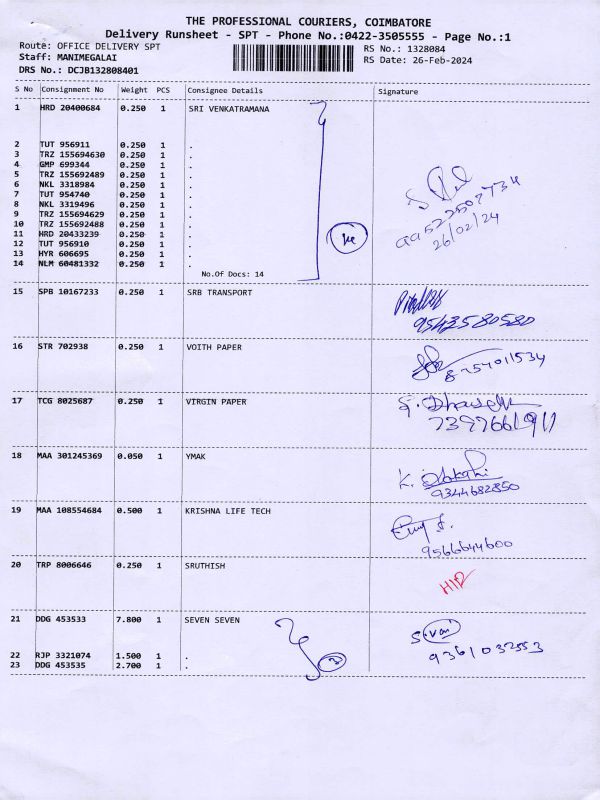 THE PROFESSIONAL COURIERS, COIMBATORE
Delivery Runsheet - SPT - Phone No.:0422-3505555 - Page No.:1
Route: OFFICE DELIVERY SPT RS No.: 1328084
Staff: MANIMEGALAI RS Date: 26-Feb-2024
DRS No.: DCJB132808401
S No Consignment No Weight PCS Consignee Details Signature
1 HRD 20400684 0.250 1 SRI VENKATRAMANA
2 TUT 956911 0.250 1 .
3 TRZ 155694630 0.250 1 .
4 GMP 699344 0.250 1 .
5 TRZ 155692489 0.250 1 .
6 NKL 3318984 0.250 1 .
7 TUT 954740 0.250 1 .
8 NKL 3319496 0.250 1 .
9 TRZ 155694629 0.250 1 .
10 TRZ 155692488 0.250 1 .
11 HRD 20433239 0.250 1 .
12 TUT 956910 0.250 1 .
13 HYR 606695 0.250 1 .
14 NLM 60481332 0.250 1 .
No.Of Docs: 14
26/02/24
15 SPB 10167233 0.250 1 SRB TRANSPORT
9543580580
16 STR 702938 0.250 1 VOITH PAPER
17 TCG 8025687 0.250 1 VIRGIN PAPER
7397661911
18 MAA 301245369 0.050 1 YMAK
9344682850
19 MAA 108554684 0.500 1 KRISHNA LIFE TECH
9566644600
20 TRP 8006646 0.250 1 SRUTHISH
21 DDG 453533 7.800 1 SEVEN SEVEN
22 RJP 3321074 1.500 1 .
9361032553
23 DDG 453535 2.700 1 .